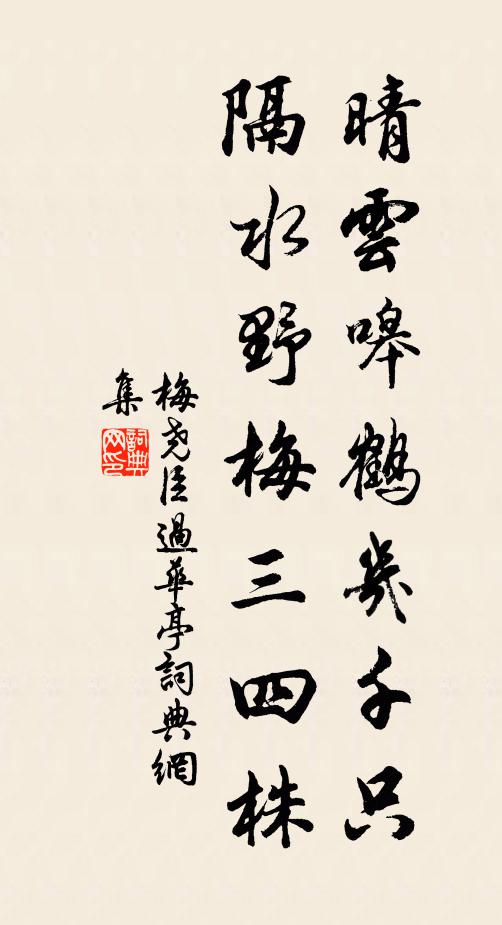 晴雲嗥鶴幾千只
隔水野梅三四株
梅堯臣過華亭詞典網
集
詞典网印